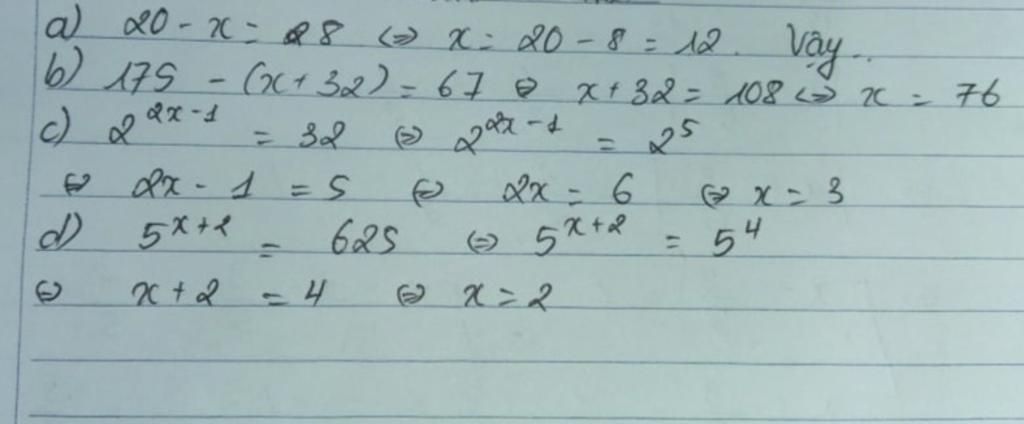 a) 20 - x = 8 ⇔ x = 20 - 8 = 12. Vậy..
b) 175 - (x + 32) = 67 ⇔ x + 32 = 108 ⇔ x = 76
c) 2^{2x-1} = 32 ⇔ 2^{2x-1} = 2^5
⇔ 2x - 1 = 5 ⇔ 2x = 6 ⇔ x = 3
d) 5^{x+2} = 625 ⇔ 5^{x+2} = 5^4
⇔ x + 2 = 4 ⇔ x = 2